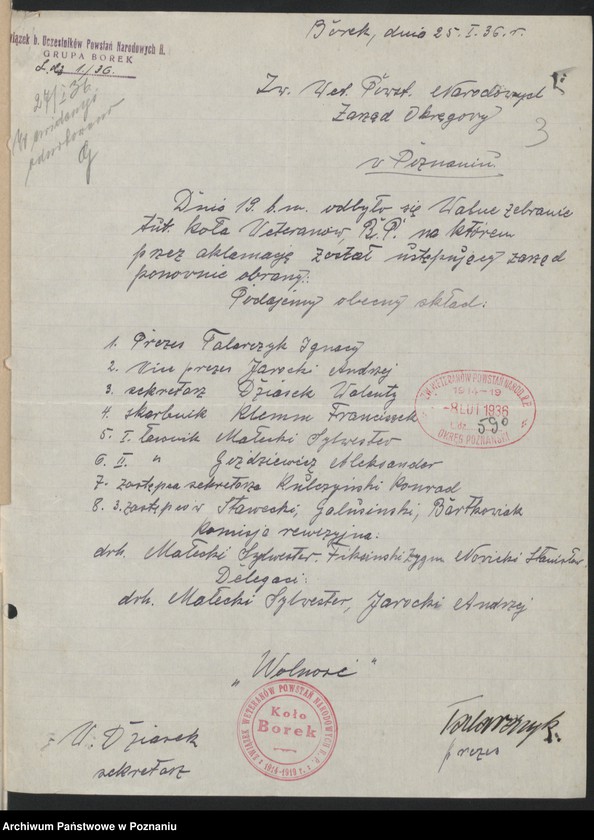 Borek, dnia 25. I. 36. r.
Związek b. Uczestników Powstań Narodowych R.
GRUPA BOREK
L. dz 1/36.
27/I 36
W ewidencji
odnotowano
Zw. Wet. Powst. Narodowych
Zarząd Okręgowy
3
w Poznaniu
Dnia 19. b.m. odbyło się Walne zebranie
tut. koła Veteranów, R.P. na którem
przez aklamację został ustępujący zarząd
ponownie obrany:
Podajemy obecny skład:
1. Prezes Talarczyk Ignacy
2. Vice prezes Jarocki Andrzej
3. sekretarz Dziasek Walenty
4. skarbnik Klemm Franciszek
5. I. Ławnik Małecki Sylwester
6. II. " Geździewicz Aleksander
7. zastępca sekretarza Kulczyński Konrad
8. 3. zastępców Sławecki, Galusinski, Bartkowiak
ZW. WETERANÓW POWSTAŃ NAROD. R.P.
1914-19
-8 LUT 1936
L.dz. 590
OKRĘG POZNAŃSKI
Komisja rewizyjna:
drh. Małecki Sylwester. Fiksinski Zygm Nowicki Stanisław
Delegaci:
drh. Małecki Sylvester, Jarocki Andrzej
"Wolność"
ZWIĄZEK WETERANÓW POWSTAŃ NARODOWYCH R.P. 1914-1919 R.
Koło
Borek
W. Dziasek
sekretarz
Talarczyk
prezes
Archiwum Państwowe w Poznaniu